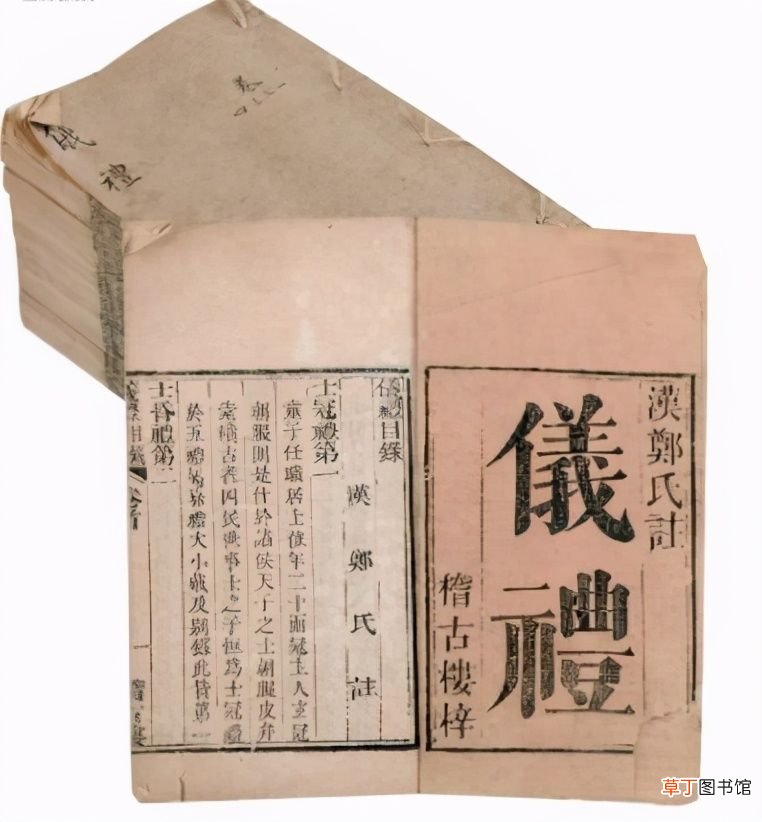 儀禮
卷
漢鄭氏註
儀禮
稽古樓梓
儀禮目錄
漢鄭氏註
士冠禮第一
童子任職居士位年二十而冠主人玄冠
朝服則是仕於諸侯天子之士朝服皮弁
素積古者四民世事士之子恒爲士冠禮
於五禮屬嘉禮大小戴及別錄此皆第一
士昏禮第二
儀禮目錄
一
草丁图书馆